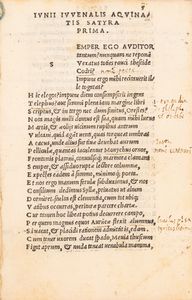 IVNII IVVENALIS AQVINA
TIS SATYRA
PRIMA.
SEMPER EGO AVDITOR
tantum? nunquam ne reponam
Vexatus toties rauci theseide
Codri?
Impune ergo mihi recitauerit ille
togatas?
H ic elegos? impune diem consumpserit ingens
T elephus? aut summi plena iam margine libri
S criptus, et in tergo nec dum finitus, Orestes?
N ota magis nulli domus est sua, quam mihi lucus
M artis, et æoliis uicinum rupibus antrum
V ulcani. quid agant uenti, quas torqueat umbras
A eacus, unde alius furtiuæ deuehat aurum
P elliculæ, quantas iaculetur Monychus ornos,
F rontonis platani, conuulsaq; marmora clamant
S emper, et assiduo ruptæ lectore columnæ.
E xpectes eadem a summo, minimoq; poeta.
E t nos ergo manum ferulæ subduximus, et nos
C onsilium dedimus Syllæ, priuatus ut altum
D ormiret. stulta est clementia, cum tot ubique
V atibus occurras, perituræ parcere chartæ.
C ur tamen hoc libeat potius decurrere campo
P er quem magnus equos Auruncæ flexit alumnus,
S i uacat, et placidi rationem admittitis, edam.
C um tener uxorem ducat spado, Meuia thuscum
F igat aprum, et nuda teneat uenabula mamma,